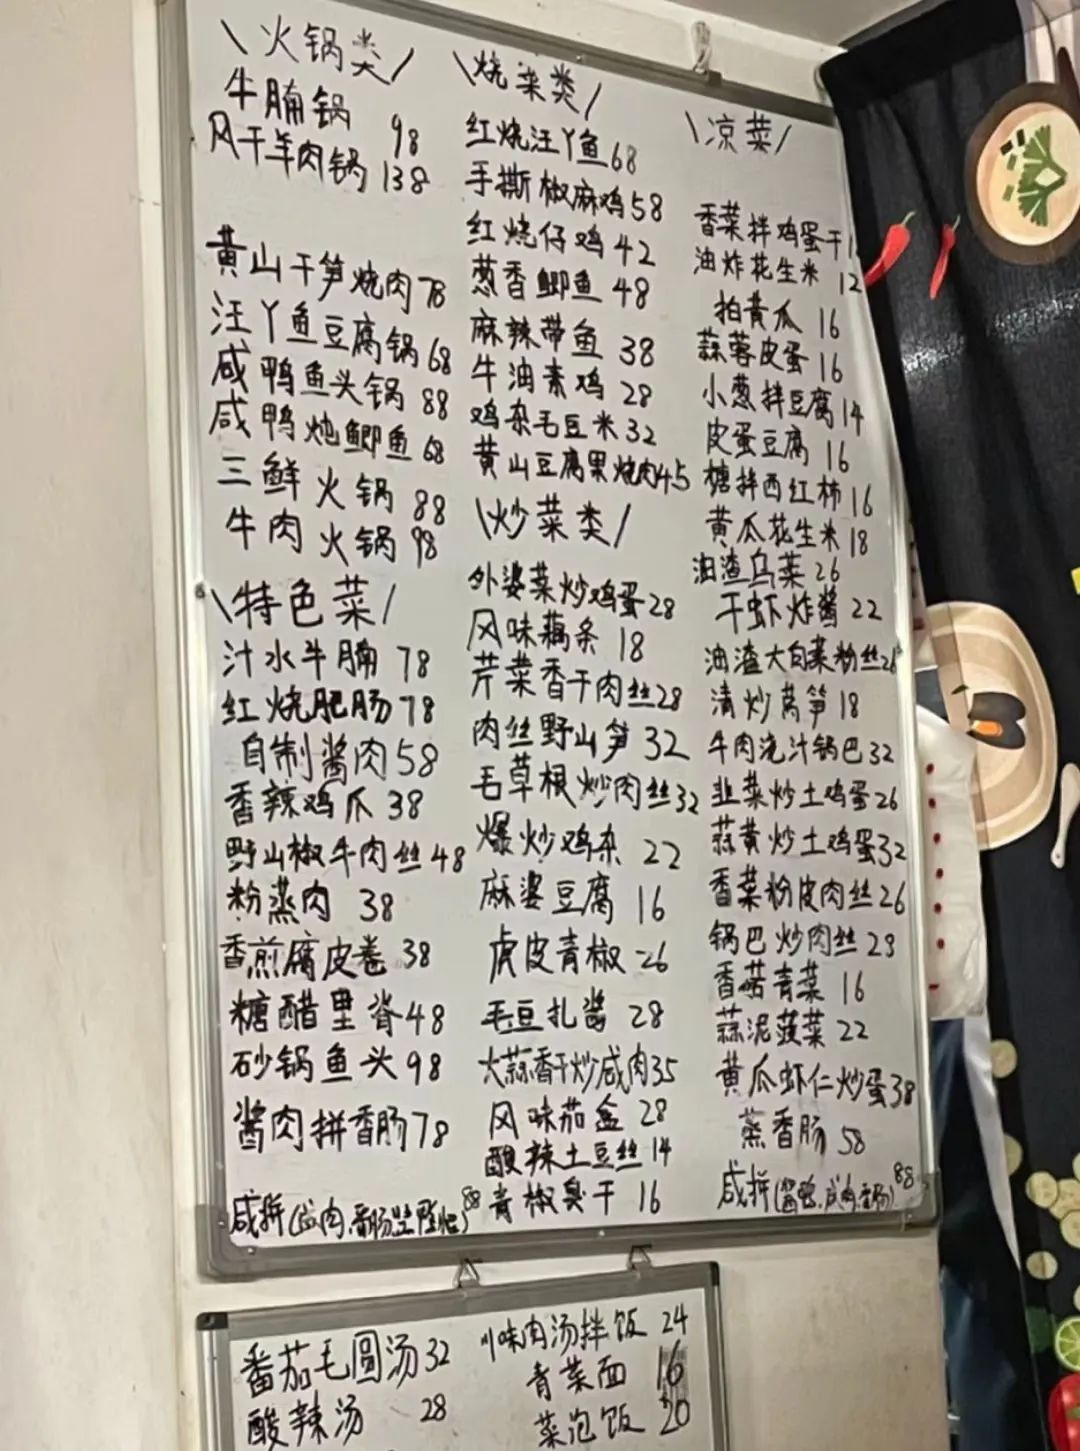 \火锅类/
牛腩锅 98
风干羊肉锅 138
黄山干笋烧肉 78
汪丫鱼豆腐锅 68
咸鸭鱼头锅 88
咸鸭炖鲫鱼 68
三鲜火锅 88
牛肉火锅 98
\特色菜/
汁水牛腩 78
红烧肥肠 78
自制酱肉 58
香辣鸡爪 38
野山椒牛肉丝 48
粉蒸肉 38
香煎腐皮卷 38
糖醋里脊 48
砂锅鱼头 98
酱肉拼香肠 78
咸拼(

\烧菜类/
红烧汪丫鱼 68
手撕椒麻鸡 58
红烧仔鸡 42
葱香鲫鱼 48
麻辣带鱼 38
牛油素鸡 28
鸡杂毛豆米 32
黄山豆腐果烧肉 45
\炒菜类/
外婆菜炒鸡蛋 28
风味藕条 18
芹菜香干肉丝 28
肉丝野山笋 32
毛草根炒肉丝 32
爆炒鸡杂 22
麻婆豆腐 16
虎皮青椒 26
毛豆扎酱 28
大蒜香干炒咸肉 35
风味茄盒 28
酸辣土豆丝 14
青椒臭干 16

\凉菜/
香菜拌鸡蛋干
油炸花生米 12
拍黄瓜 16
蒜蓉皮蛋 16
小葱拌豆腐 14
皮蛋豆腐 16
糖拌西红柿 16
黄瓜花生米 18
油渣乌菜 26
干虾炸酱 22
油渣大白菜粉丝 26
清炒莴笋 18
牛肉浇汁锅巴 32
韭菜炒土鸡蛋 26
蒜黄炒土鸡蛋 32
香菜粉皮肉丝 26
锅巴炒肉丝 28
香菇青菜 16
蒜泥菠菜 22
黄瓜虾仁炒蛋 38
蒸香肠 58
咸拼(酱鸭.咸肉.香肠) 88

番茄毛圆汤 32
酸辣汤 28
川味肉汤拌饭 24
青菜面 16
菜泡饭 20